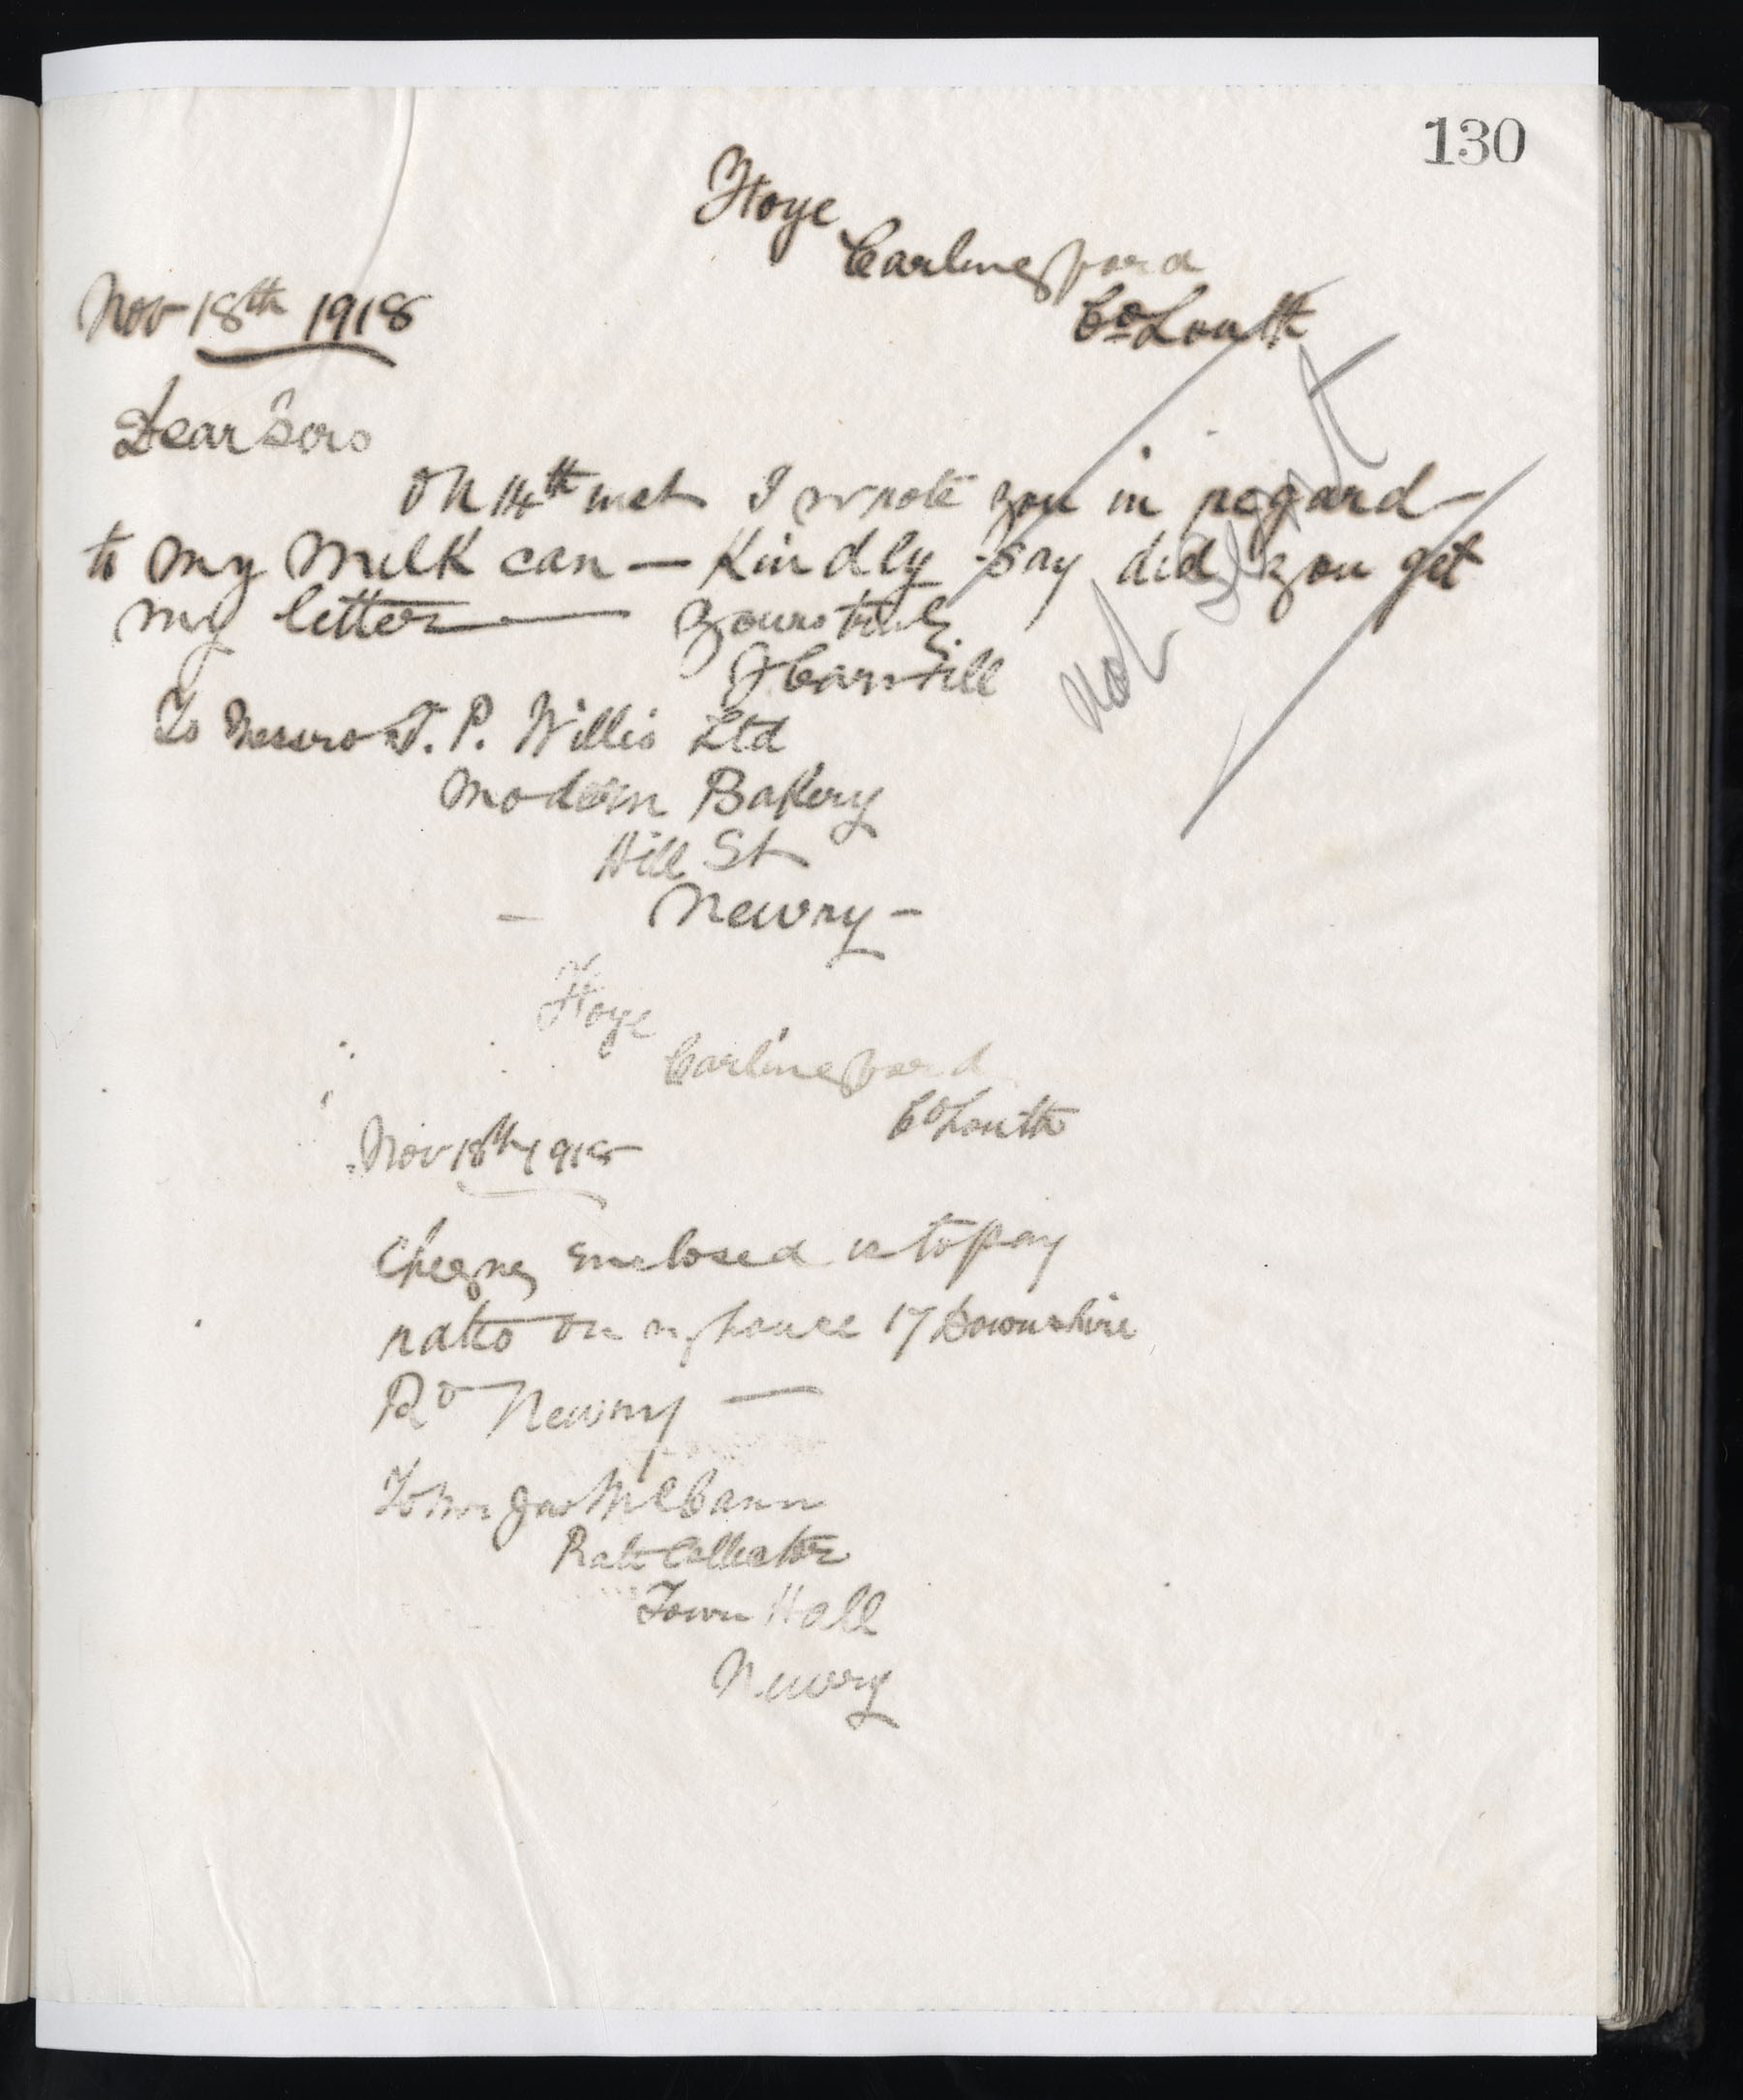 130
Hoye
Carlingford
Co Louth
Nov 18th 1918
Dear Sirs
On 14th inst I wrote you in regard
to my milk can — Kindly say did you get
my letter — Yours truly
not sent
J Carvill
To Messrs T. P. Willis Ltd
Modern Bakery
Hill St
— Newry —
Hoye
Carlingford
Co Louth
Nov 18th 1918
Cheque enclosed is to pay
rates on my house 17 Downshire
Rd Newry —
To Mr Jas McCann
Rate Collector
Town Hall
Newry